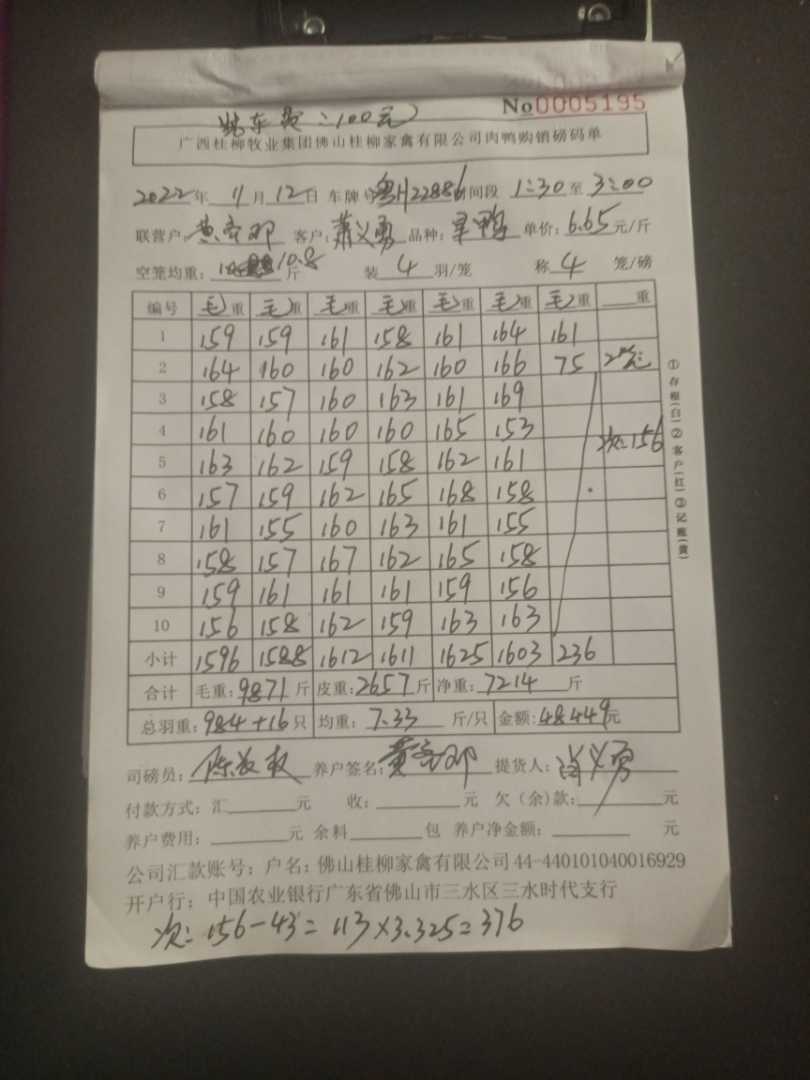 No0005195
车费:100元
广西桂柳牧业集团佛山桂柳家禽有限公司肉鸭购销磅码单
2022年 11月 12日 车牌号 粤H22886 间段 1:30 至 3:00
联营户: 客户:萧义勇 品种: 鸭 单价:6.65元/斤
空笼均重: 10.8 斤 装 4 羽/笼 称 4 笼/磅
编号 毛重 毛重 毛重 毛重 毛重 毛重 毛重 重
1 159 159 161 158 161 164 161
2 164 160 160 162 160 166 75
3 158 157 160 163 161 169
4 161 160 160 160 165 153 次:156
5 163 162 159 158 162 161
6 157 159 162 165 168 158
7 161 155 160 163 161 155
8 158 157 167 162 165 158
9 159 161 161 161 159 156
10 156 158 162 159 163 163
小计 1596 1588 1612 1611 1625 1603 236
合计 毛重:9871斤 皮重:2657斤 净重:7214斤
总羽重:984+16只 均重:7.33斤/只 金额:48449元
司磅员: 养户签名: 提货人:肖义勇
付款方式:汇 元 收: 元 欠(余)款: 元
养户费用: 元 余料 包 养户净金额: 元
公司汇款账号:户名:佛山桂柳家禽有限公司44-440101040016929
开户行:中国农业银行广东省佛山市三水区三水时代支行
次:156-43=113×3.325=376
①存根(白)②客户(红)③记账(黄)